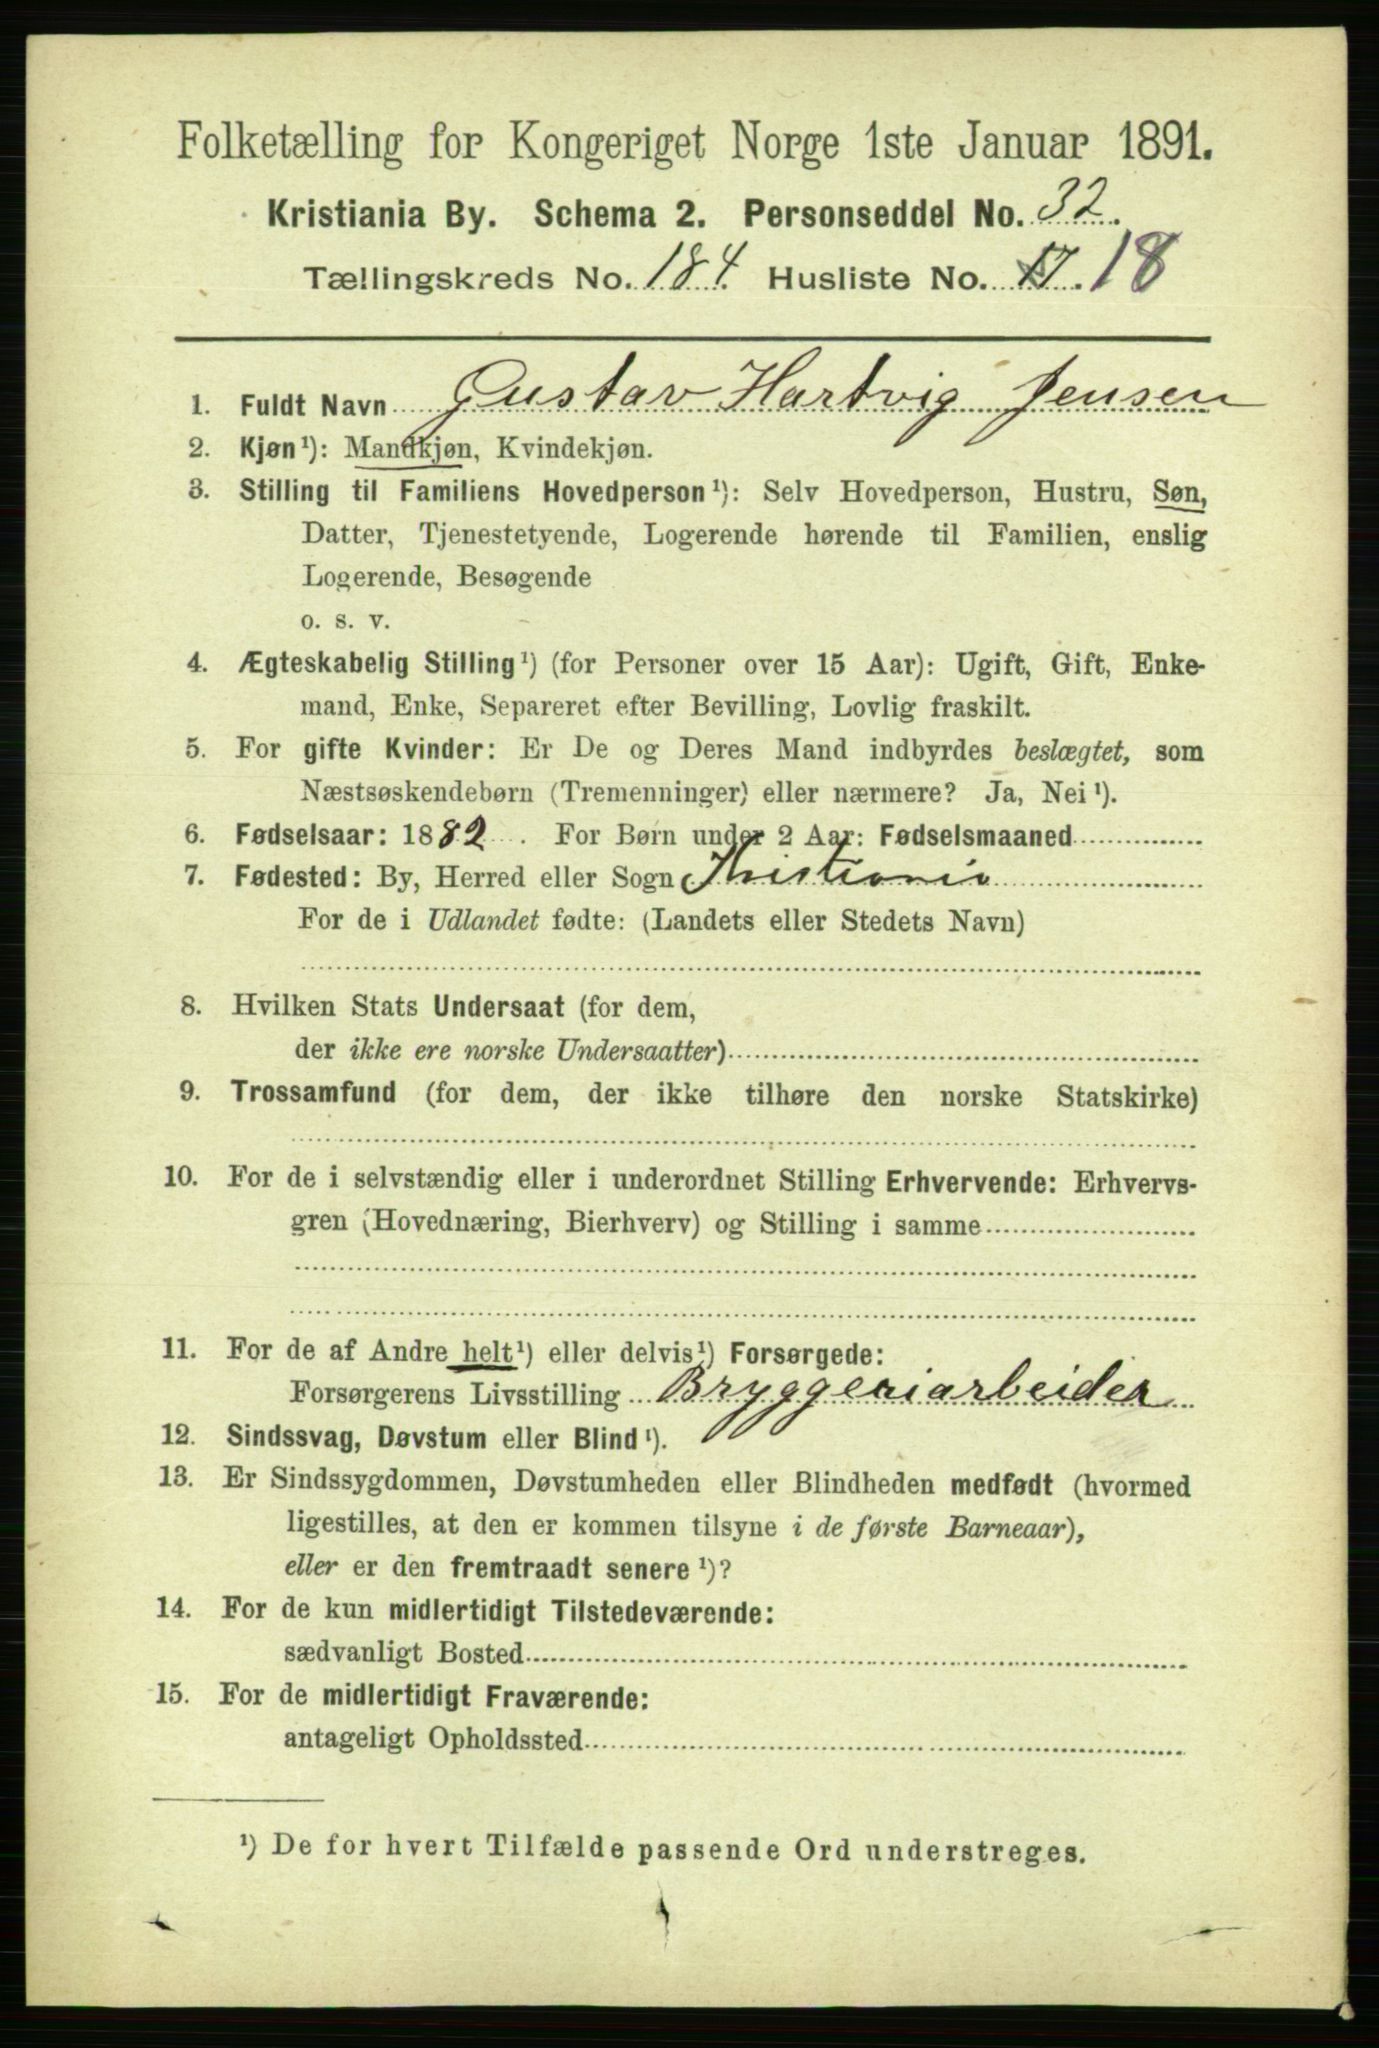 Folketælling for Kongeriget Norge 1ste Januar 1891.
Kristiania By. Schema 2. Personseddel No. 32.
Tællingskreds No. 184. Husliste No. 17. 18
1. Fuldt Navn Gustav Hartvig Jensen
2. Kjøn¹): Mandkjøn, Kvindekjøn.
3. Stilling til Familiens Hovedperson¹): Selv Hovedperson, Hustru, Søn,
Datter, Tjenestetyende, Logerende hørende til Familien, enslig
Logerende, Besøgende
o. s. v.
4. Ægteskabelig Stilling¹) (for Personer over 15 Aar): Ugift, Gift, Enke-
mand, Enke, Separeret efter Bevilling, Lovlig fraskilt.
5. For gifte Kvinder: Er De og Deres Mand indbyrdes beslægtet, som
Næstsøskendebørn (Tremenninger) eller nærmere? Ja, Nei¹).
6. Fødselsaar: 1882. For Børn under 2 Aar: Fødselsmaaned
7. Fødested: By, Herred eller Sogn Kristiania
For de i Udlandet fødte: (Landets eller Stedets Navn)
8. Hvilken Stats Undersaat (for dem,
der ikke ere norske Undersaatter)
9. Trossamfund (for dem, der ikke tilhøre den norske Statskirke)
10. For de i selvstændig eller i underordnet Stilling Erhvervende: Erhvervs-
gren (Hovednæring, Bierhverv) og Stilling i samme
11. For de af Andre helt¹) eller delvis¹) Forsørgede:
Forsørgerens Livsstilling Bryggeriarbeider
12. Sindssvag, Døvstum eller Blind¹).
13. Er Sindssygdommen, Døvstumheden eller Blindheden medfødt (hvormed
ligestilles, at den er kommen tilsyne i de første Barneaar),
eller er den fremtraadt senere¹)?
14. For de kun midlertidigt Tilstedeværende:
sædvanligt Bosted
15. For de midlertidigt Fraværende:
antageligt Opholdssted
¹) De for hvert Tilfælde passende Ord understreges.